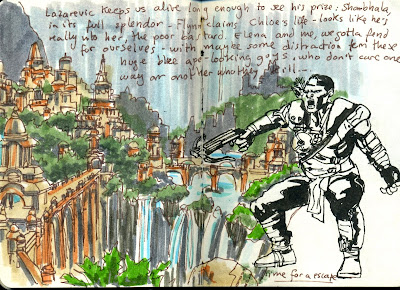 Lazarevic keeps us alive long enough to see his prize: Shambhala,
in its full splendor - Flynn claims Chloe's life - looks like he's
really into her, the poor bastard. Elena and me, we gotta fend
for ourselves - with maybe some distraction from these
huge blue ape-looking guys, who don't care one
way or another who they kill...
time for a escape